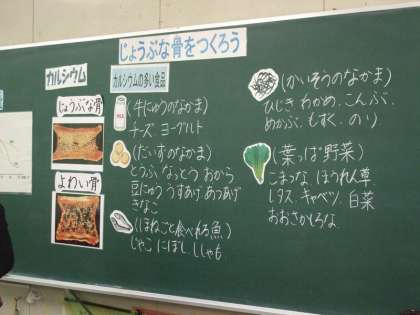 じょうぶな骨をつくろう
カルシウム
じょうぶな骨
よわい骨
カルシウムの多い食品
(牛にゅうのなかま)
チーズ ヨーグルト
(だいずのなかま)
とうふ なっとう おから
豆にゅう うすあげ あつあげ
きなこ
(ほねごと食べれる魚)
じゃこ にぼし ししゃも
(かいそうのなかま)
ひじき わかめ こんぶ
めかぶ もずく のり
(葉っぱ野菜)
こまつな ほうれん草
レタス キャベツ 白菜
おおさかしろな